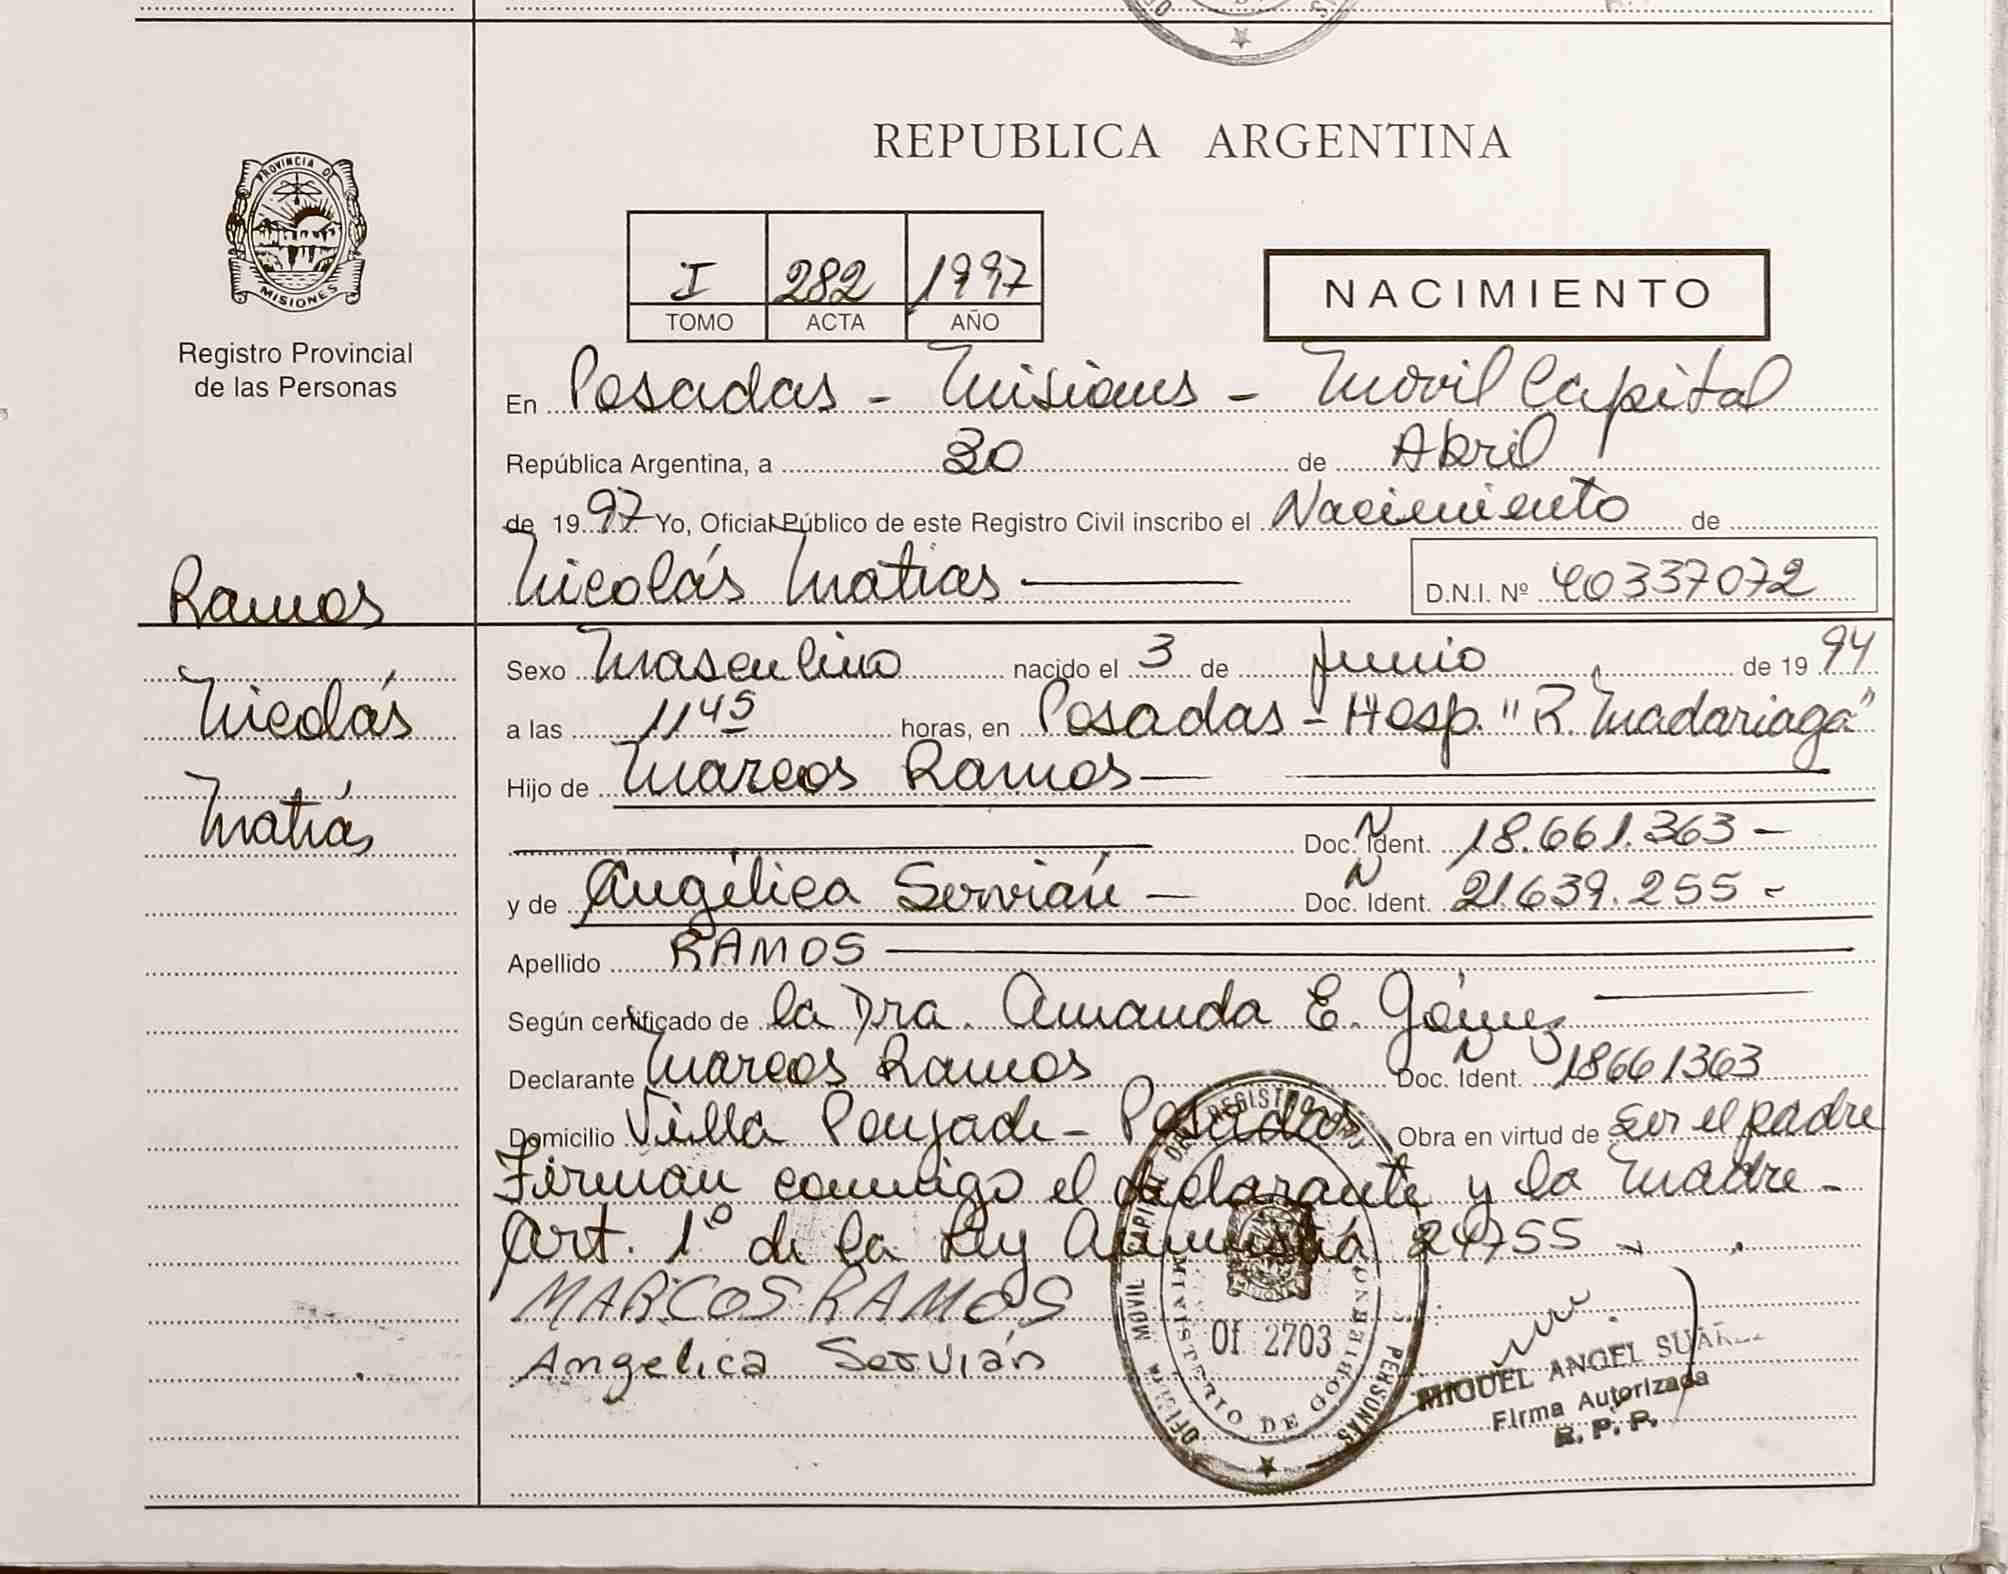 PROVINCIA DE
MISIONES
Registro Provincial
de las Personas
Ramos
Nicolás
Matías
REPUBLICA ARGENTINA
I 282 1997
TOMO ACTA AÑO
NACIMIENTO
En Posadas - Misiones - Móvil Capital
República Argentina, a 30 de Abril
de 1997 Yo, Oficial Público de este Registro Civil inscribo el Nacimiento de
Nicolás Matias D.N.I. Nº 40337072
Sexo Masculino nacido el 3 de junio de 1994
a las 11 45 horas, en Posadas - Hosp. "R. Madariaga"
Hijo de Marcos Ramos
Doc. Ident. 18.661.363 -
y de Angélica Servián - Doc. Ident. 21639.255 -
Apellido RAMOS
Según certificado de la Dra. Amanda E. Gómez
Declarante Marcos Ramos Doc. Ident. 18661363
Domicilio Villa Poujade - Posadas Obra en virtud de ser el padre
Firman conmigo el declarante y la madre -
Art. 1º de la Ley Amnistía 24755
MARCOS RAMOS
Angelica Servián
MINISTERIO DE GOBIERNO
Of 2703
MIGUEL ANGEL SUAREZ
Firma Autorizada
R. P. P.